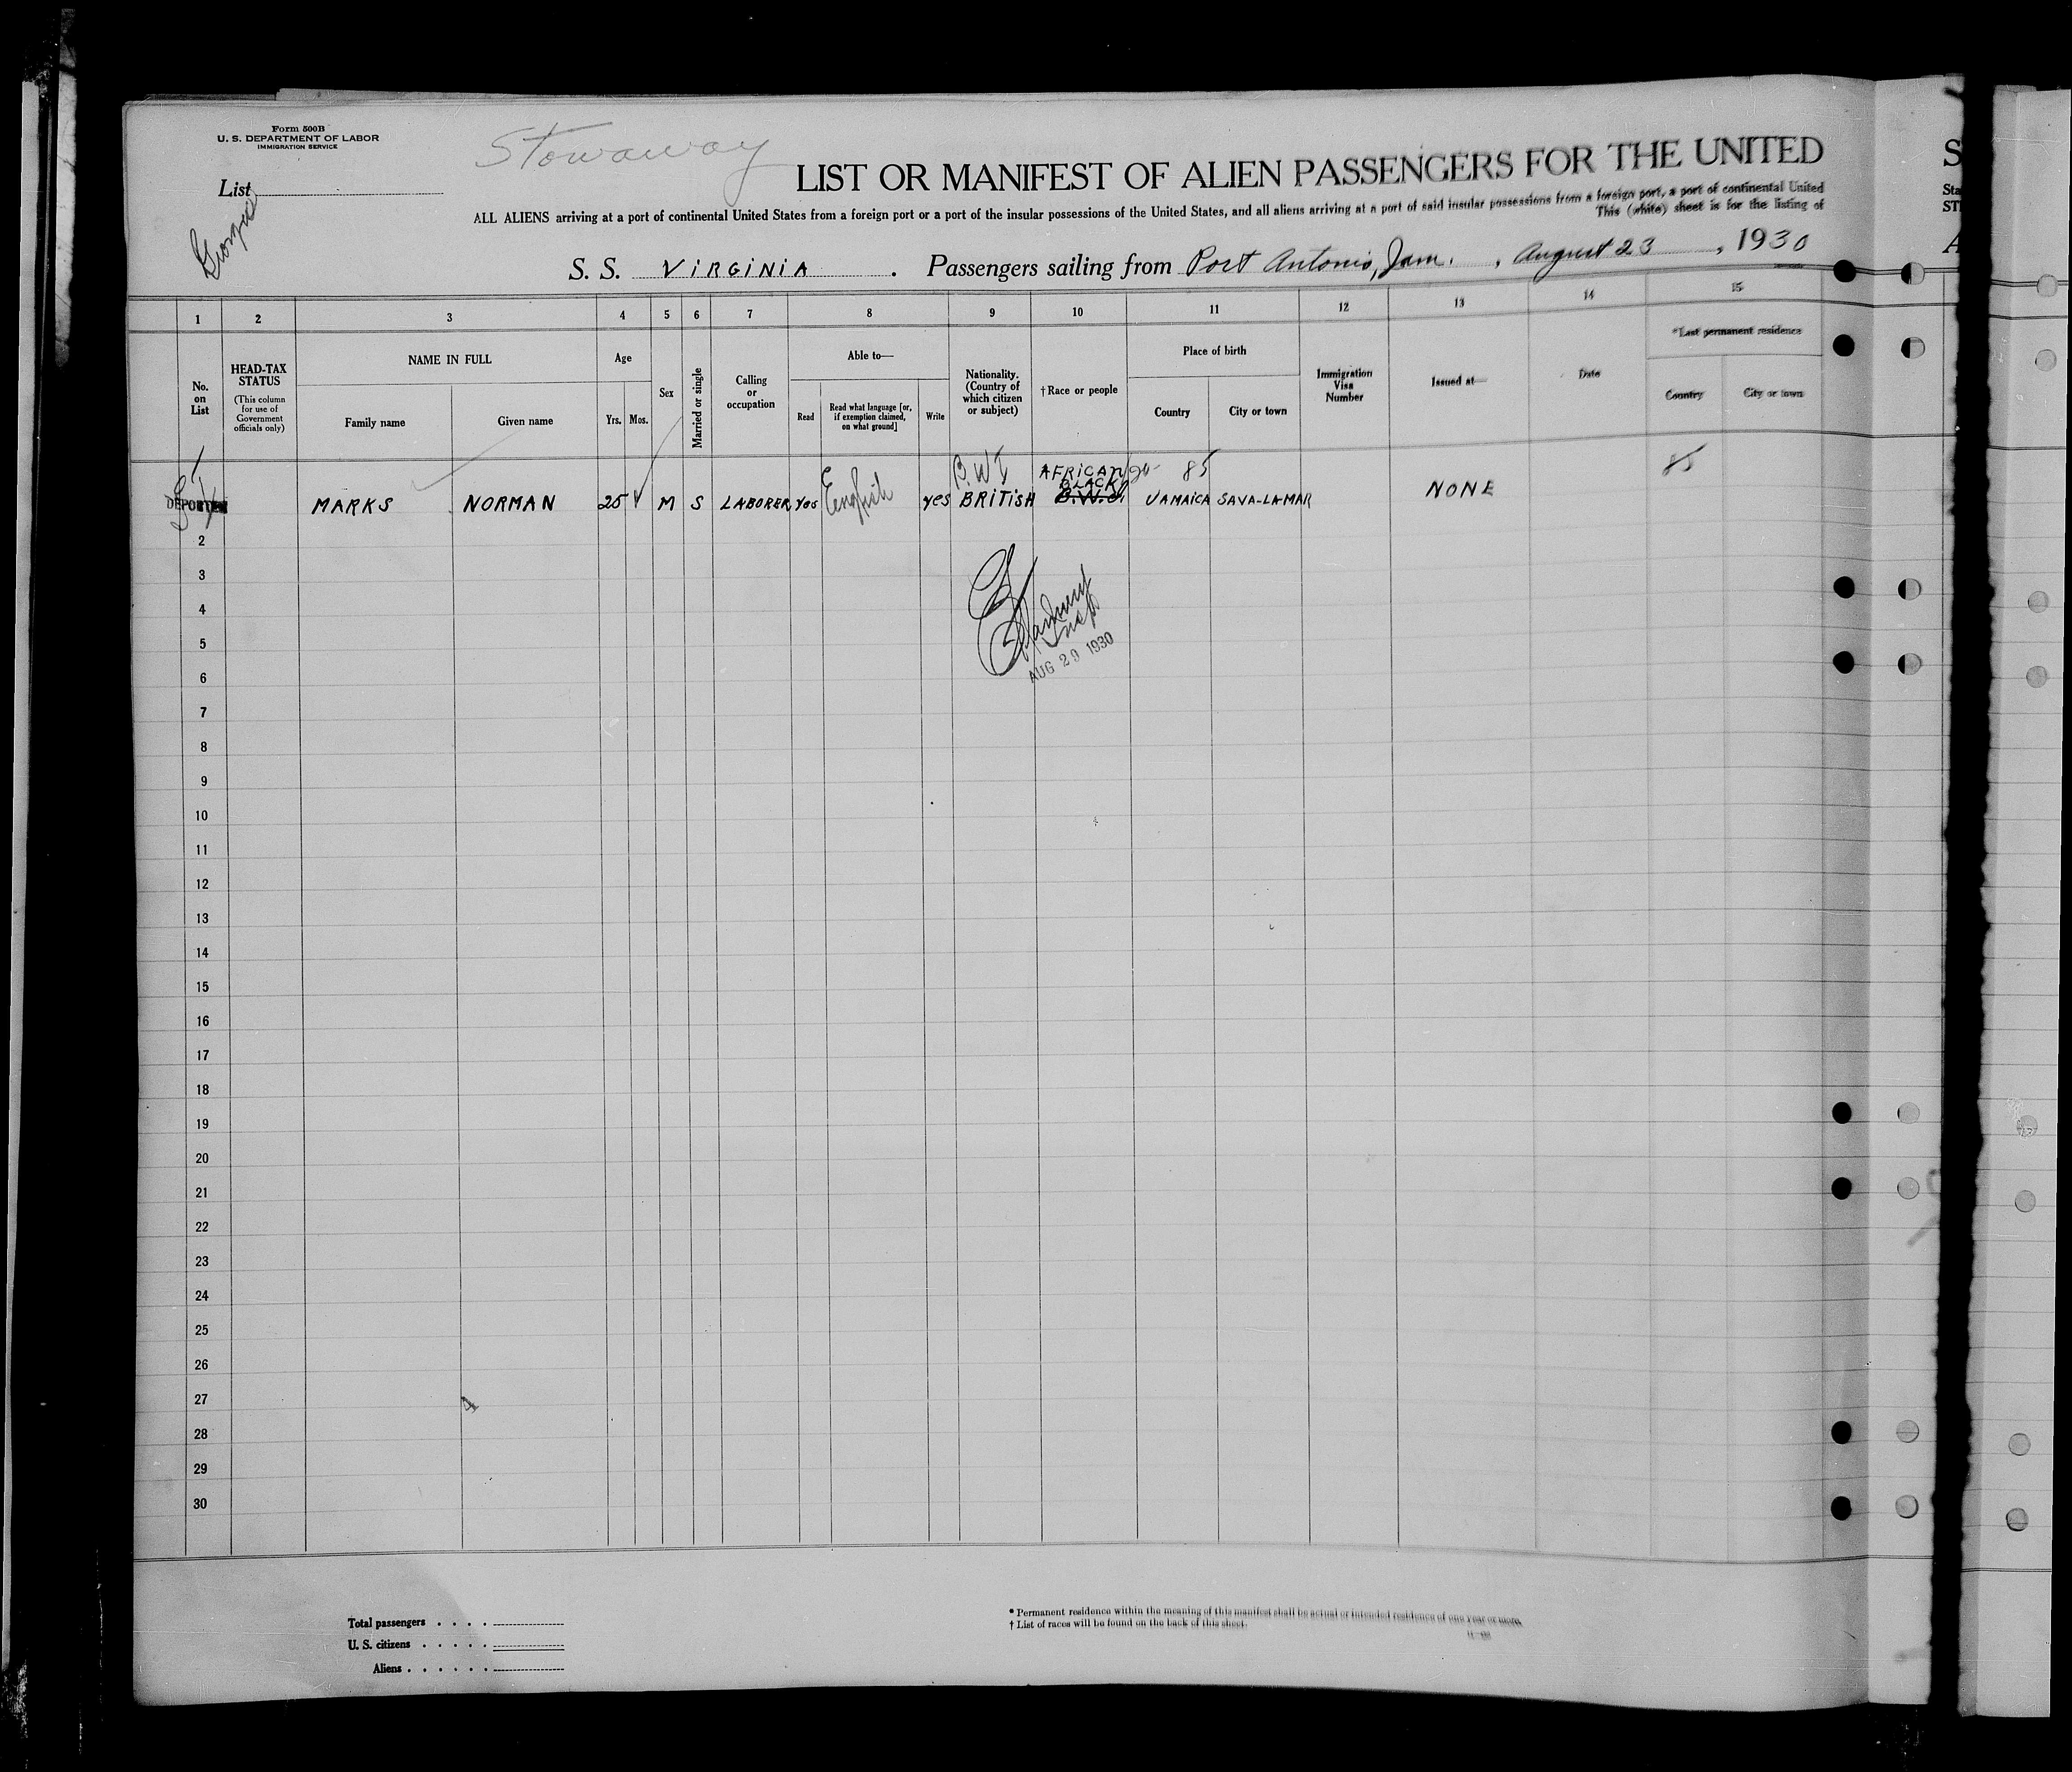 Form 500B
U. S. DEPARTMENT OF LABOR
IMMIGRATION SERVICE
Stowaway
List
LIST OR MANIFEST OF ALIEN PASSENGERS FOR THE UNITED
ALL ALIENS arriving at a port of continental United States from a foreign port or a port of the insular possessions of the United States, and all aliens arriving at a port of said insular possessions from a foreign port, a port of continental United
This (white) sheet is for the listing of
S. S. VIRGINIA . Passengers sailing from Port Antonio, Jam. , August 23 , 1930
1 2 3 4 5 6 7 8 9 10 11 12 13 14 15
No. on List
HEAD-TAX STATUS
(This column for use of Government officials only)
NAME IN FULL
Family name
Given name
Age
Yrs.
Mos.
Sex
Married or single
Calling or occupation
Able to—
Read
Read what language [or, if exemption claimed, on what ground]
Write
Nationality. (Country of which citizen or subject)
†Race or people
Place of birth
Country
City or town
Immigration Visa Number
Issued at—
Date
*Last permanent residence
Country
City or town
B.W.I AFRICAN 85 85
BLACK
DEPORTED MARKS NORMAN 25 M S LABORER Yes English yes BRITISH B.W.I. JAMAICA SAVA-LA-MAR NONE
2
3
4
5
Insp
AUG 29 1930
6
7
8
9
10
11
12
13
14
15
16
17
18
19
20
21
22
23
24
25
26
27
4
28
29
30
Total passengers . . . .
U. S. citizens . . . . .
Aliens . . . . . .
* Permanent residence within the meaning of this manifest shall be actual or intended residence of one year or more.
† List of races will be found on the back of this sheet.
S
Sta
ST
A